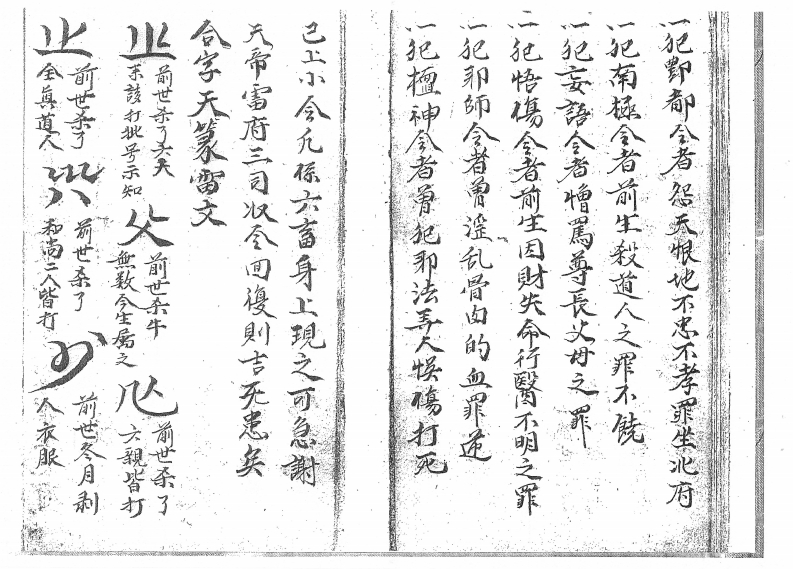 一犯酆都令者怨天恨地不忠不孝罪坐北府
一犯南極令者前生殺道人之罪不饒
一犯妄語令者憎罵尊長父母之罪
一犯悟傷令者前生因財失命行醫不明之罪
一犯邪師令者曾淫乱骨肉的血罪逆
一犯檀神令者曾犯邪法弄人悞傷打死
已上小令凡係六畜身上現之可急謝
天帝雷府三司収令回復則吉死患矣
合字天篆雷文
前世杀了
來該打批号示知
前世杀牛
無数今生属之
前世杀了
六親皆打
前世杀了
全真道人
前世杀了
和尚二人皆打
前世冬月剥
人衣服